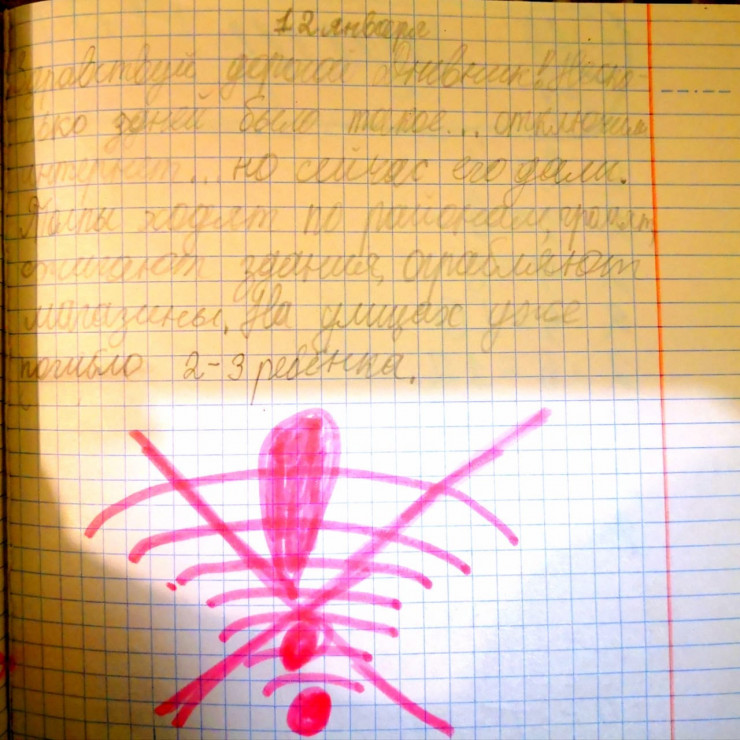 12 января
Здравствуй дорогой Дневник! Неско-
лько здней было такое... отключили
интернет... но сейчас его дали.
Толпы ходят по районам, громят,
сжигают здания, ограбляют
магазины. На улицах уже
погибло 2-3 ребёнка.